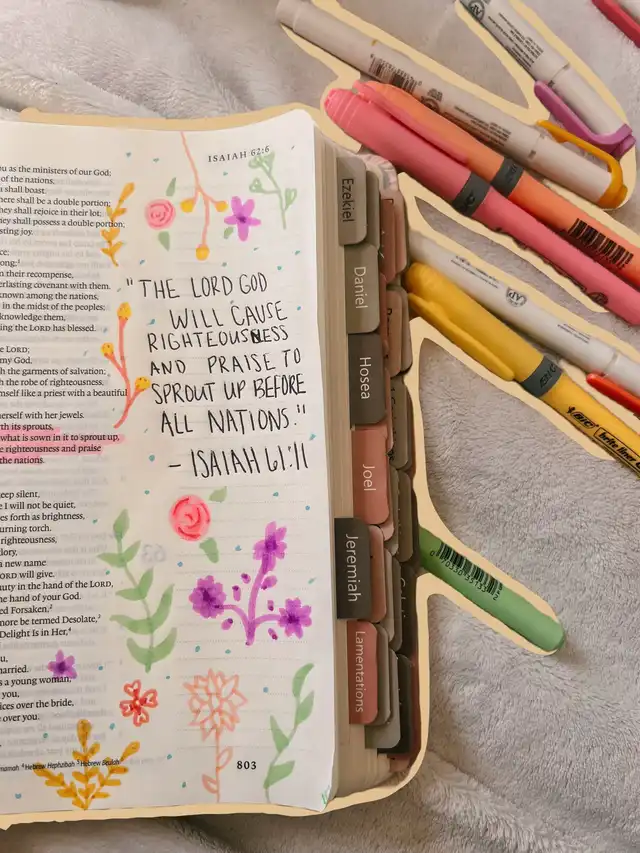 ISAIAH 62:6
ou as the ministers of our God;
of the nations,
shall boast.
here shall be a double portion;
hey shall rejoice in their lot;
hey shall possess a double portion;
sting joy.
ce;
ong;
n their recompense,
erlasting covenant with them.
known among the nations,
in the midst of the peoples;
knowledge them,
ing the LORD has blessed.
e LORD;
my God,
h the garments of salvation;
h the robe of righteousness,
mself like a priest with a beautiful
erself with her jewels.
rth its sprouts,
what is sown in it to sprout up,
e righteousness and praise
the nations.
eep silent,
e I will not be quiet,
es forth as brightness,
urning torch.
righteousness,
lory,
a new name
ORD will give.
uty in the hand of the LORD,
he hand of your God.
ed Forsaken,2
more be termed Desolate,3
Delight Is in Her,4
u,
arried.
s a young woman,
you,
ices over the bride,
over you.
4 Hebrew Hephzibah 5 Hebrew Beulah
803
"THE LORD GOD
WILL CAUSE
RIGHTEOUSNESS
AND PRAISE TO
SPROUT UP BEFORE
ALL NATIONS."
- ISAIAH 61:11
Ezekiel
Daniel
Hosea
Joel
Jeremiah
Lamentations
BIC
brite liner
0 70330 35133